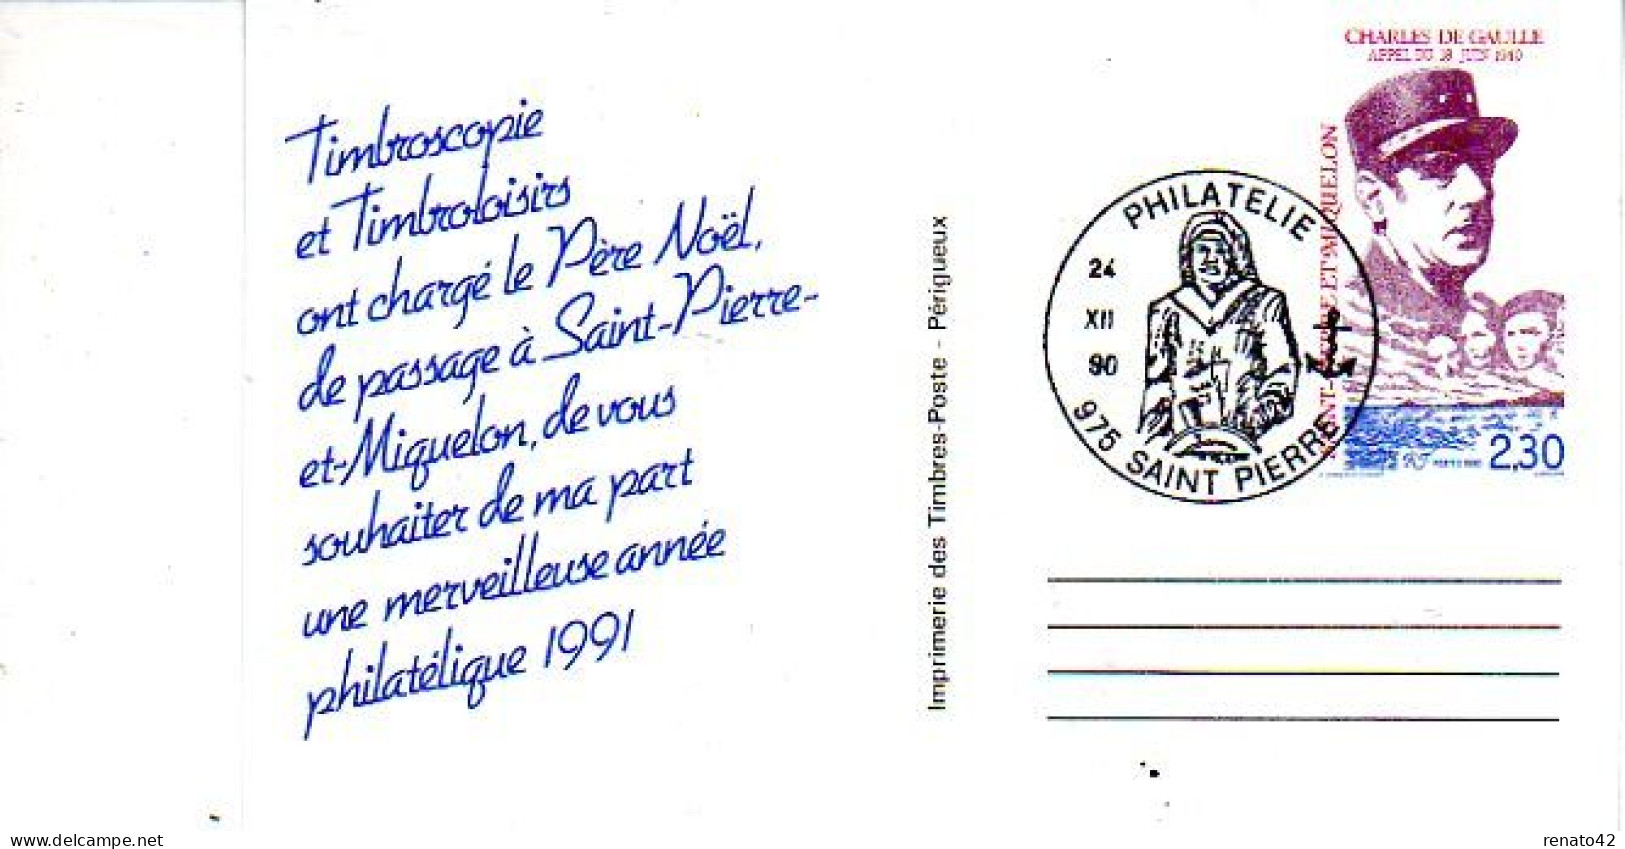 Timbroscopie
et Timbroloisirs
ont chargé le Père Noël,
de passage à Saint-Pierre-
et-Miquelon, de vous
souhaiter de ma part
une merveilleuse année
philatélique 1991
Imprimerie des Timbres-Poste - Périgueux
PHILATELIE
24
XII
90
975 SAINT PIERRE
CHARLES DE GAULLE
APPEL DU 18 JUIN 1940
SAINT-PIERRE ET MIQUELON
2,30
delcampe.net
renato42